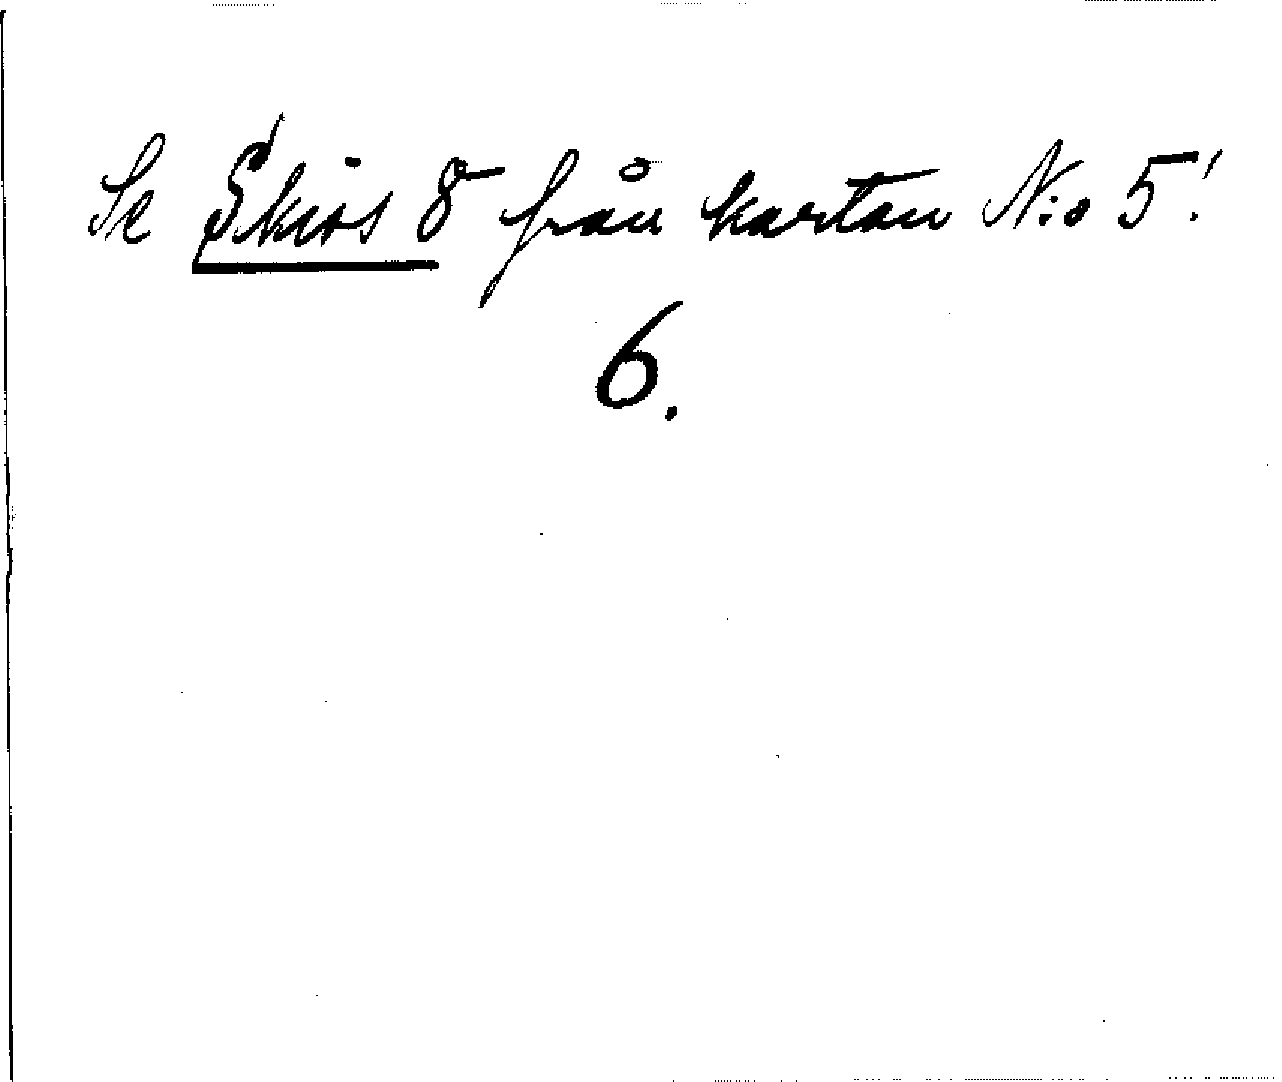 Se Skiss 8 från kartan N:o 5!
6.